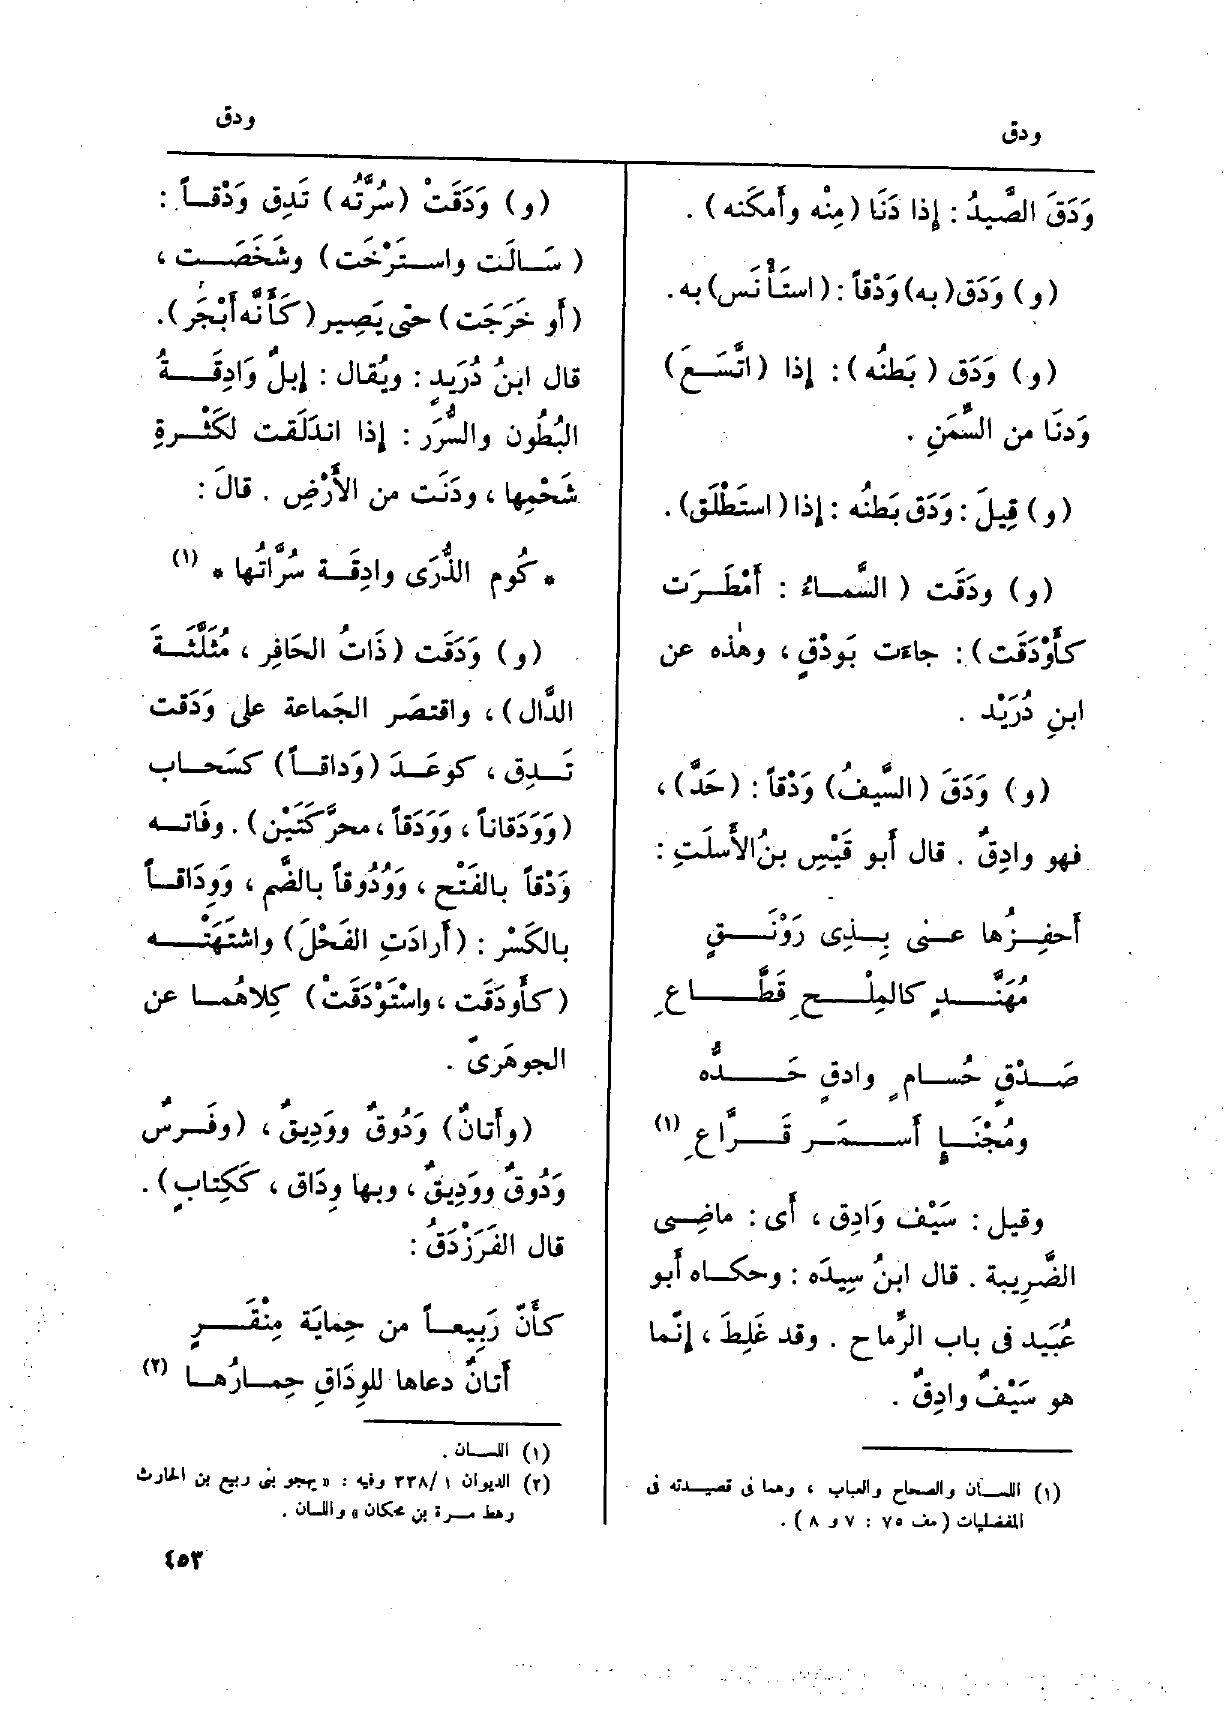 ودق
ودق
وَدَقَ الصَّيدُ : إذا دَنَا (مِنْه وأَمكَنه) .
(و) وَدَق (به) وَدْقاً : (استَأْنَس) به.
(و) وَدَق (بَطنُه) : إذا (اتَّسَعَ)
وَدنَا من السِّمَنِ .
(و) قِيلَ : وَدَق بَطنُه : إذا (استَطْلَق).
(و) ودَقَت (السَّماءُ : أَمْطَرَت
كأَوْدَقَت) : جاءَت بوَدْقٍ ، وهٰذه عن
ابنِ دُرَيْد .
(و) وَدَقَ (السَّيفُ) وَدْقاً : (حَدَّ) ،
فهو وادِقٌ . قال أبو قَيْسِ بنُ الأَسلَتِ :
أَحفِزُها عنى بِذِى رَوْنَقٍ
مُهَنَّدٍ كالمِلْحِ قَطَّاعِ
صَدْقٍ حُسامٍ وادقٍ حَدُّه
ومُجْنَإٍ أَسمَر قَرَّاعِ (١)
وقيل : سَيْف وَادِق ، أَى : ماضِى
الضَّرِيبة . قال ابنُ سِيدَه : وحكاه أَبو
عُبَيد فى باب الرِّماح . وقد غَلِطَ ، إنّما
هو سَيْفٌ وادِقٌ .
(١) اللسان والصحاح والعباب ، وهما فى قصيدته فى
المفضليات (مف ٧٥ : ٧ و ٨) .
(و) وَدَقَتْ (سُرَّتُه) تَدِق وَدْقاً :
(سَالَت واستَرْخَت) وشَخَصَت ،
(أَو خَرَجَت) حتى يَصِير (كَأَنَّه أَبْجَر).
قال ابنُ دُرَيدٍ : ويُقال : إبلٌ وَادِقَةُ
البُطُون والسُّرَر : إذا اندَلَقت لكَثْرةِ
شَحْمِها ، ودَنَت من الأَرْضِ . قالَ :
* كُوم الذُّرَى وادِقَة سُرَّاتُها * (١)
(و) وَدَقَت (ذَاتُ الحَافِر ، مُثَلَّثَةَ
الدَّال) ، واقتصَر الجَماعة على وَدَقت
تَدِق ، كوعَدَ (وَداقاً) كسَحاب
(وَوَدَقاناً ، وَوَدَقاً ، محرَّكَتَيْن) . وفَاته
وَدْقاً بالفَتْح ، وَوُدُوقاً بالضَّم ، وَوِدَاقاً
بالكَسْر : (أَرادَتِ الفَحْلَ) واشتَهَتْه
(كأَودَقَت ، واسْتَوْدَقَتْ) كِلاهُما عن
الجوهَرىّ .
(وأَتانٌ) وَدُوقٌ ووَدِيقٌ ، (وفَرسٌ
وَدُوقٌ ووَدِيقٌ ، وبها وِدَاق ، كَكِتابٍ) .
قال الفَرَزْدَقُ :
كأَنّ رَبِيعاً من حِمايَة مِنْقَرٍ
أَتانٌ دعاها للوِدَاقِ حِمارُها (٢)
(١) اللسان .
(٢) الديوان ١ /٣٣٨ وفيه : « يهجو بنى ربيع بن الحارث
رهط مرة بن محكان » واللسان .
٤٥٣